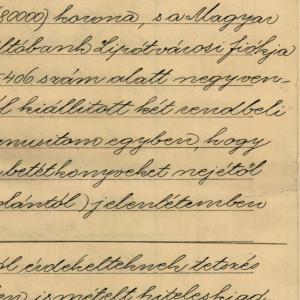 80000) korona, s a Magyar
ltóbank Lipótvárosi fiókja
406 szám alatt negyven-
l kiállitott két rendbeli
anusitom egyben, hogy
betétkönyveket nejétől
lántól) jelenlétemben
ól érdekelteknek tetszés
en ismételt hiteles kiad